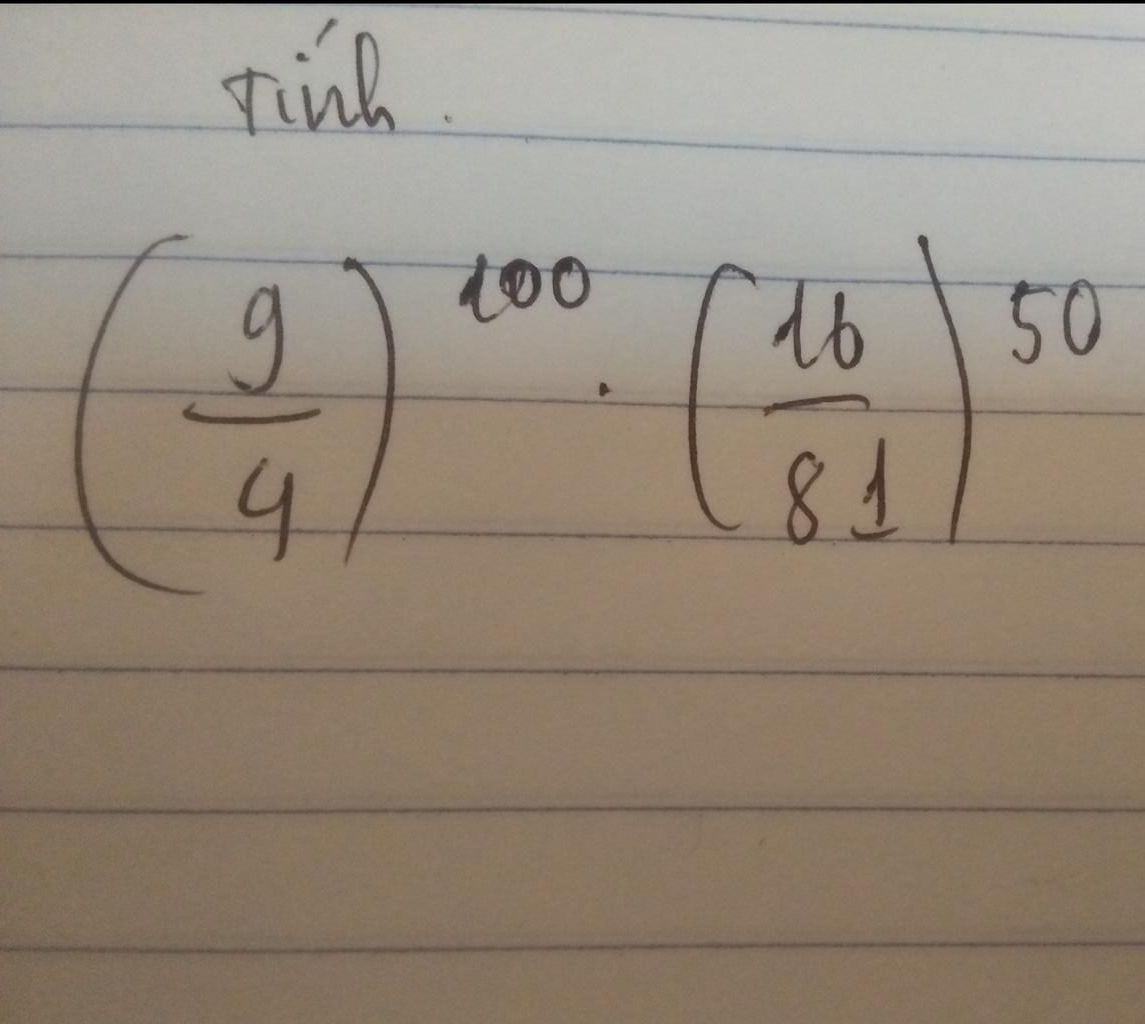 Tính.
(9/4)^100 . (16/81)^50